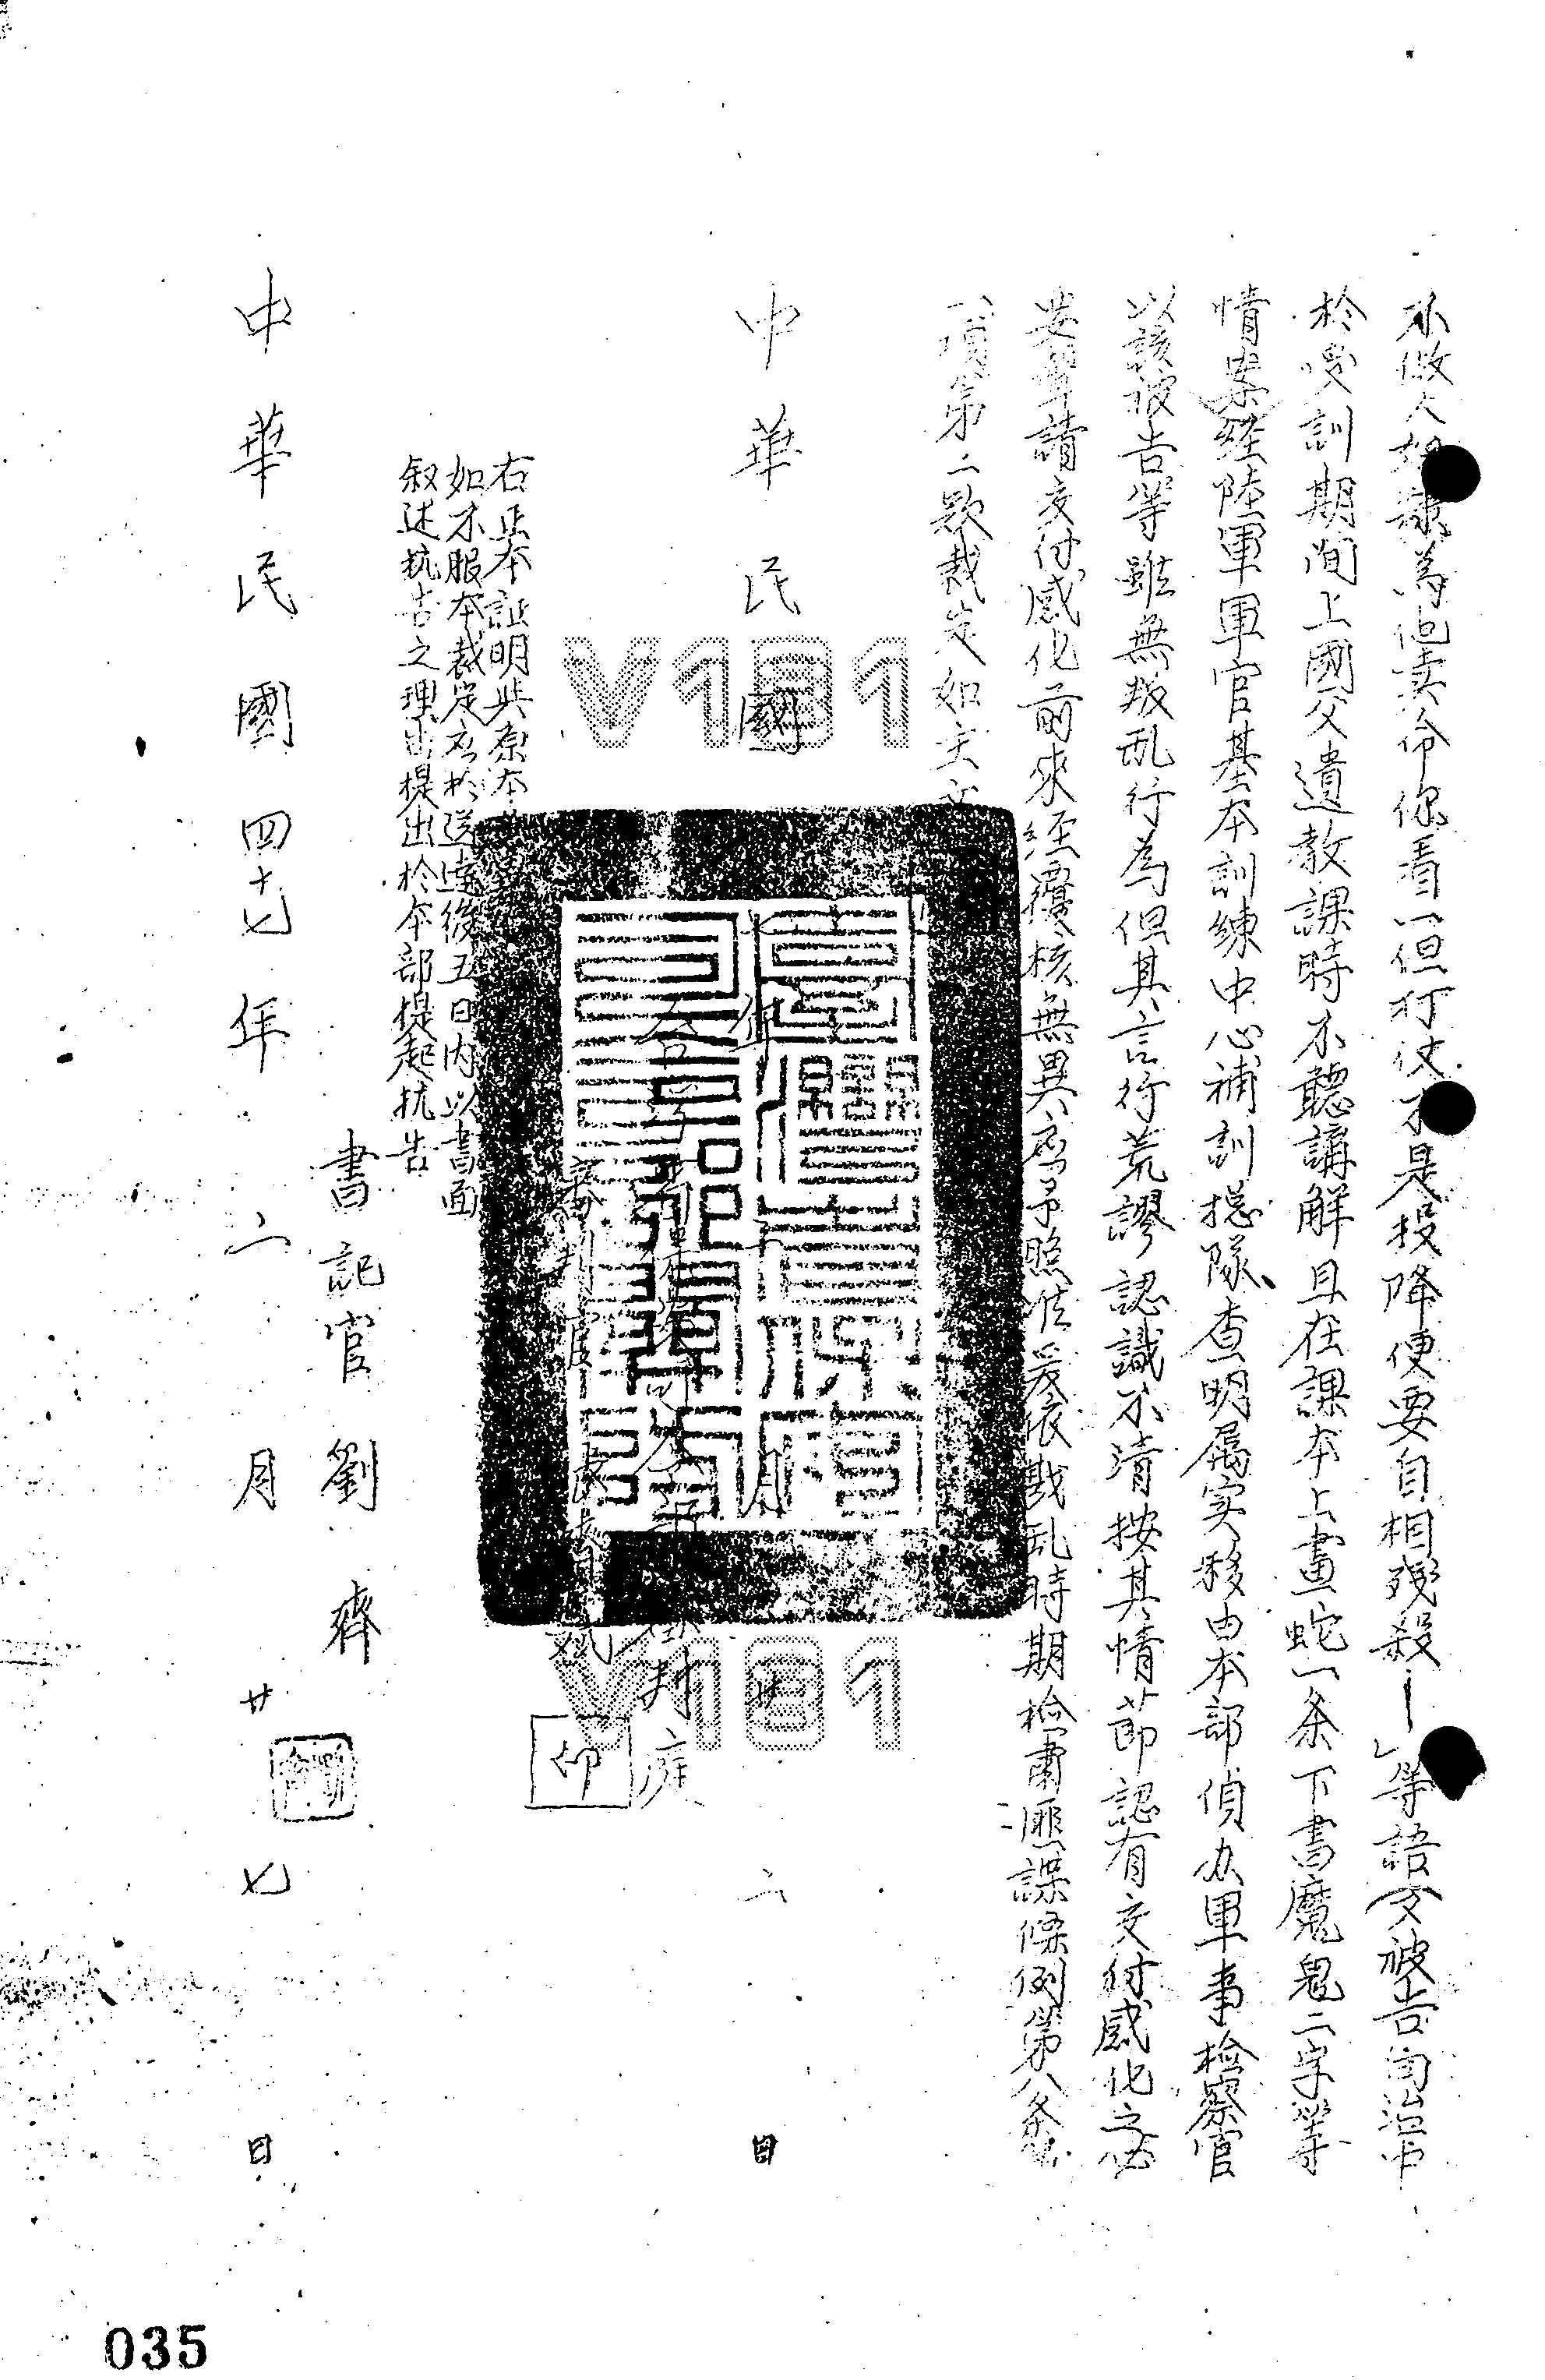 不做人奴隸為他卖命你看一但打仗不是投降便要自相残殺——」等語又被告向治中
於受訓期间上國父遺教課時不聽講解且在課本上畫蛇一条下書魔鬼二字等
情案経陸軍軍官基本訓練中心補訓総隊查明属实移由本部偵办軍事檢察官
以該被告等雖無叛乱行為但其言行荒謬認識不清按其情節認有交付感化之必
要聲請交付感化前來經覆核無異應予照准爰依戡乱時期檢肅匪諜條例第八条第
一項第二款裁定如主文
中華民國 年 月 日
審判庭
審判官
印
右正本証明與原本
如不服本裁定应於送達後五日內以書面
叙述抗告之理由提出於本部提起抗告
書記官劉齊
中華民國四十七年二月廿七日
V181
V181
035